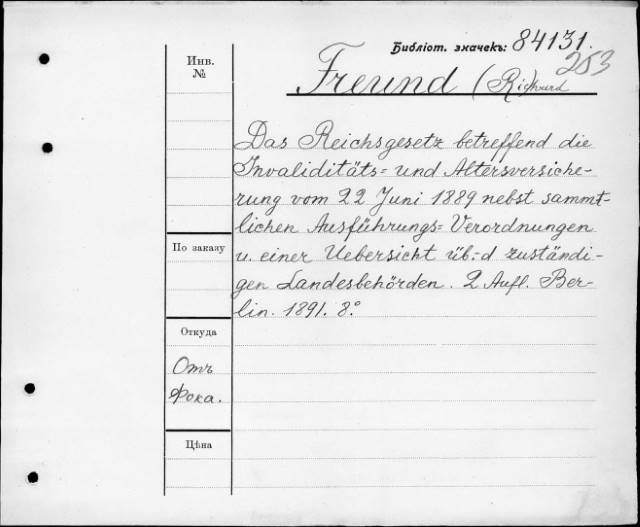 Библіот. значекъ: 84131.
253
Инв.
№
Freund (Richard
Das Reichsgesetz betreffend die
Invaliditäts= und Altersversiche-
rung vom 22 Juni 1889 nebst sammt-
lichen Ausführungs= Verordnungen
u. einer Uebersicht üb. d zuständi-
gen Landesbehörden. 2 Aufl. Ber-
lin. 1891. 8°.
По заказу
Откуда
Отъ
Фока.
Цѣна